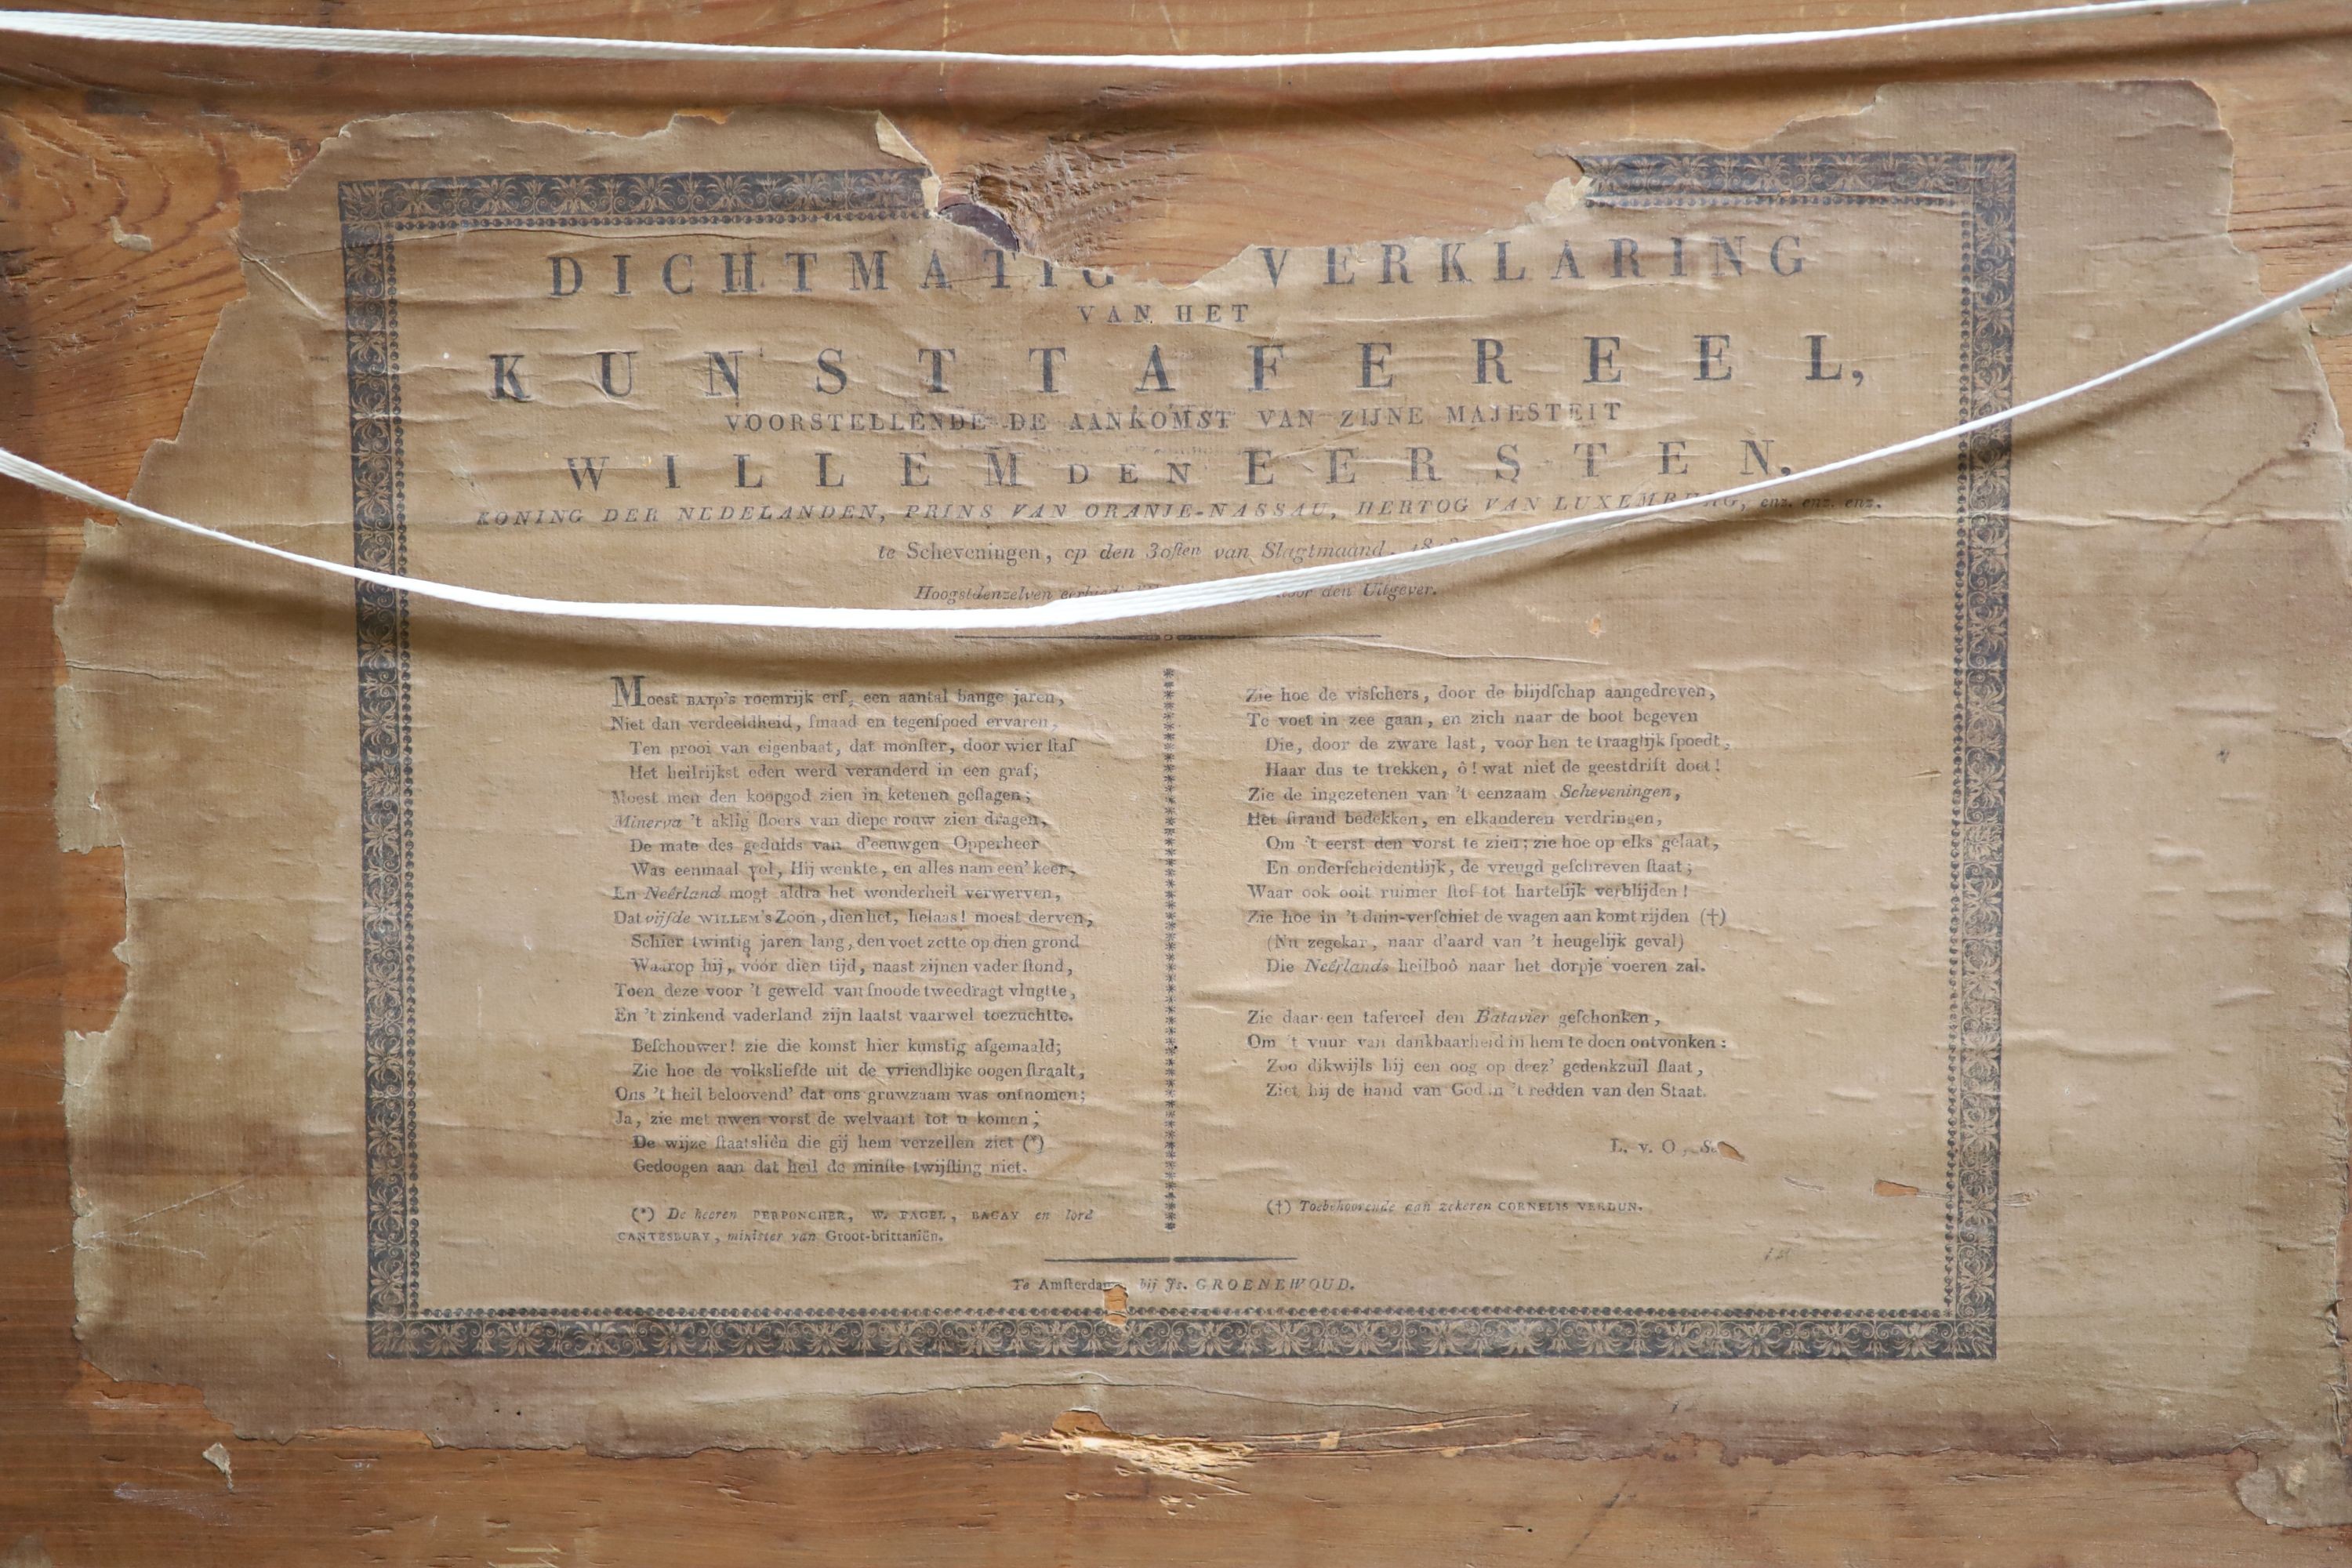 DICHTMATIG VERKLARING
VAN HET
KUNSTTAFEREEL,
VOORSTELLENDE DE AANKOMST VAN ZIJNE MAJESTEIT
WILLEM DEN EERSTEN.
KONING DER NEDELANDEN, PRINS VAN ORANJE-NASSAU, HERTOG VAN LUXEMBURG, enz. enz. enz.
te Scheveningen, op den 30ſten van Slagtmaand,
Hoogstdenzelven door den Uitgever.
Moest BATO's roemrijk erf, een aantal bange jaren,
Niet dan verdeeldheid, ſmaad en tegenſpoed ervaren,
Ten prooi van eigenbaat, dat monſter, door wier ſtaf
Het heilrijkst eden werd veranderd in een graf;
Moest men den koopgod zien in ketenen geſlagen;
Minerva 't aklig floers van diepe rouw zien dragen,
De mate des gedulds van d'eeuwgen Opperheer
Was eenmaal vol, Hij wenkte, en alles nam een' keer,
En Neêrland mogt aldra het wonderheil verwerven,
Dat vijfde WILLEM's Zoon, dien het, helaas! moest derven,
Schier twintig jaren lang, den voet zette op dien grond
Waarop hij, vóór dien tijd, naast zijnen vader ſtond,
Toen deze voor 't geweld van ſnoode tweedragt vlugtte,
En 't zinkend vaderland zijn laatst vaarwel toezuchtte.
Beſchouwer! zie die komst hier kunstig afgemaald;
Zie hoe de volksliefde uit de vriendlijke oogen ſtraalt,
Ons 't heil beloovend' dat ons gruwzaam was ontnomen;
Ja, zie met uwen vorst de welvaart tot u komen;
De wijze ſtaatsliên die gij hem verzellen ziet (*)
Gedoogen aan dat heil de minſte twijfling niet.
(*) De heeren PERPONCHER, W. FAGEL, BAGAY en lord
CANTESBURY, minister van Groot-brittaniën.
Zie hoe de visſchers, door de blijdſchap aangedreven,
Te voet in zee gaan, en zich naar de boot begeven
Die, door de zware last, voor hen te traaglijk ſpoedt,
Haar dus te trekken, ô! wat niet de geestdrift doet!
Zie de ingezetenen van 't eenzaam Scheveningen,
Het ſtrand bedekken, en elkanderen verdringen,
Om 't eerst den vorst te zien; zie hoe op elks gelaat,
En onderſcheidentlijk, de vreugd geſchreven ſtaat;
Waar ook ooit ruimer ſtof tot hartelijk verblijden!
Zie hoe in 't duin-verſchiet de wagen aan komt rijden (†)
(Nu zegekar, naar d'aard van 't heugelijk geval)
Die Neêrlands heilboô naar het dorpje voeren zal.
Zie daar een tafereel den Batavier geſchonken,
Om 't vuur van dankbaarheid in hem te doen ontvonken:
Zoo dikwijls hij een oog op deez' gedenkzuil ſlaat,
Ziet hij de hand van God in 't redden van den Staat.
L. v. O,
(†) Toebehoorende aan zekeren CORNELIS VERDUN.
Te Amſterdam, bij Js. GROENEWOUD.